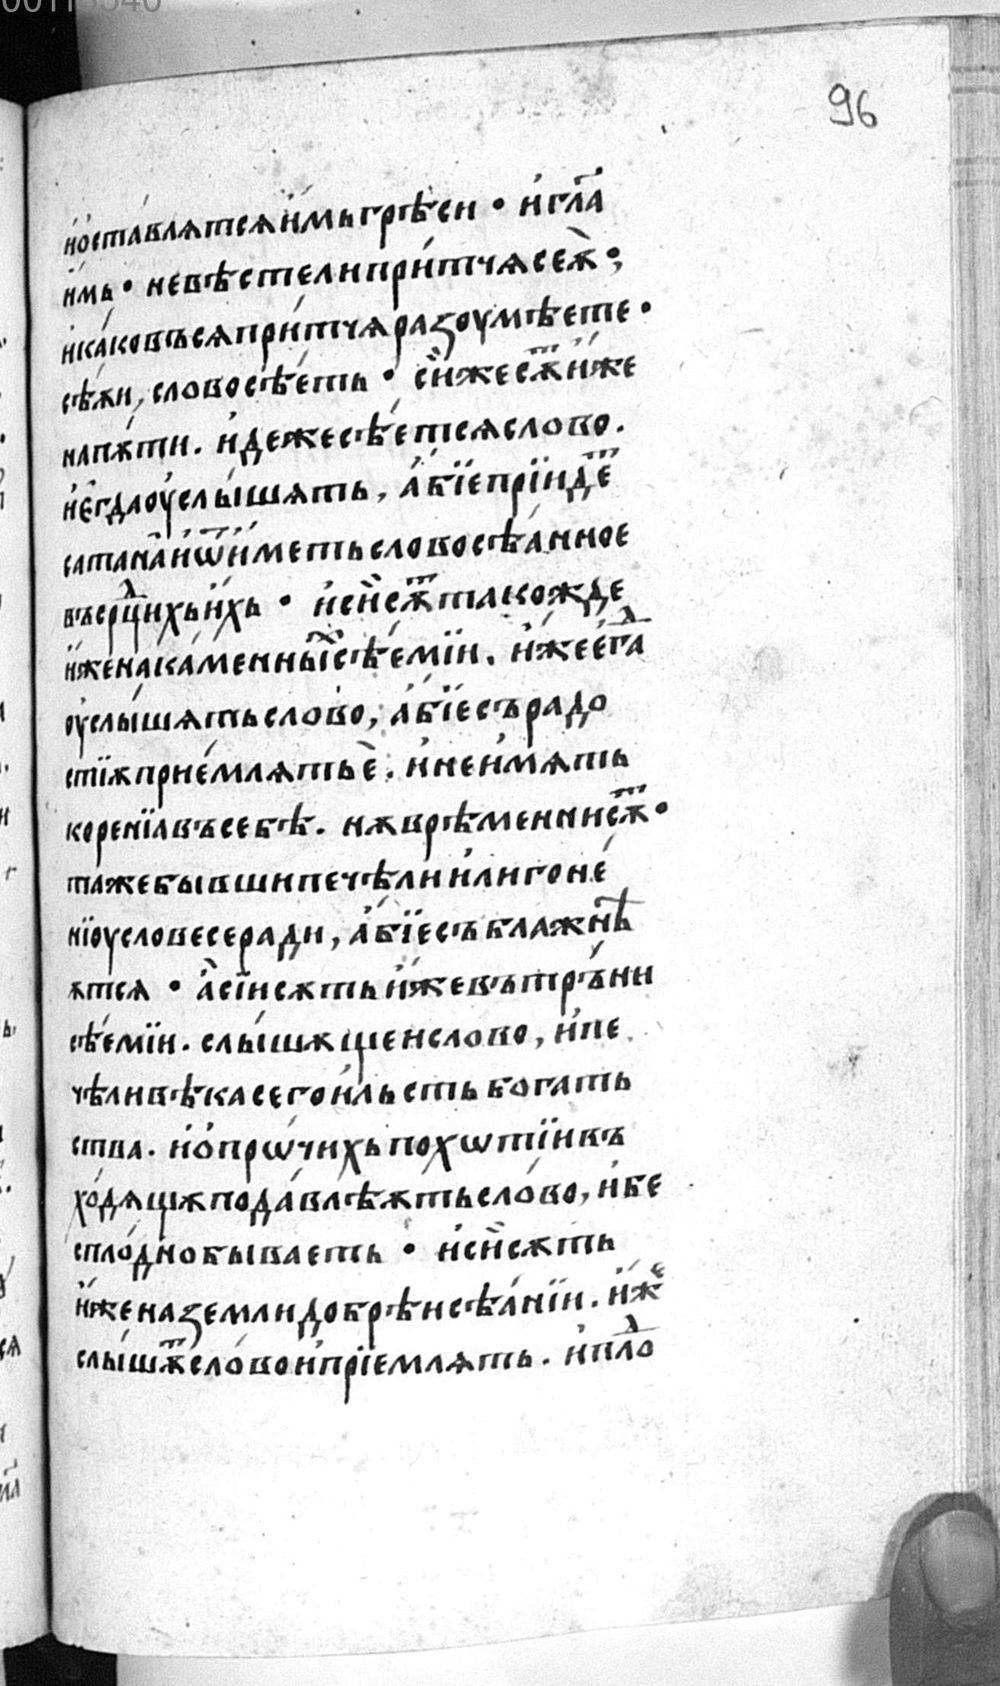 96
и҆ѡ҆ста́влѧтсѧ и҆́мь грѣси • и҆ гл҃а
и҆́мь • не вѣсте ли при́тчѧ сеѫ̀ •;
и҆ ка́ко въсѧ при́тчѧ разоумѣете •
сѣѫи, слово сѣ́еть • сі́и же сѫⷮ и҆́же
на пѫти. и҆деже сѣ́етсѧ слово.
и҆ є҆гда оу҆слы́шѧть, а҆́бїе прїидеⷮ
сатана̀ и҆ ѿи́меть слово сѣ́анное
въ срⷣцихь и҆́хь • и҆ сі́и сѫⷮ такожде
и҆́же на ка́менныⷯ сѣ́емїи. и҆́же є҆гⷣа
оу҆слы́шѧть слово, а҆́бїе съ радо
стїѫ прие́млѧть е҆̀. и҆ не и҆́мѧть
коренїа въ себѣ. нѫ врѣменни сѫⷮ •
таже бывши печѣли и҆ли гоне́
нїоу словесе ради, а҆́бїе съблажнѣ
ѫтсѧ • а҆ сі́и сѫть и҆́же въ тръ́ни
сѣ́емїи. слы́шѫщеи слово, и҆ пе
чѣли вѣка сего и҆ льсть богать
ства. и҆ ѡ҆ прѡ́чихь похѡтїи въ
хо́дѧщѫ пода́влѣѫть сло́во, и҆ бе
спло́дно бываеть • и҆ сі́и сѫть
и҆́же на земли добрѣи сѣ́анїи. и҆́жⷷ
слы́шѫⷮ сло́во и҆ прїемлѧть. и҆ плоⷣ